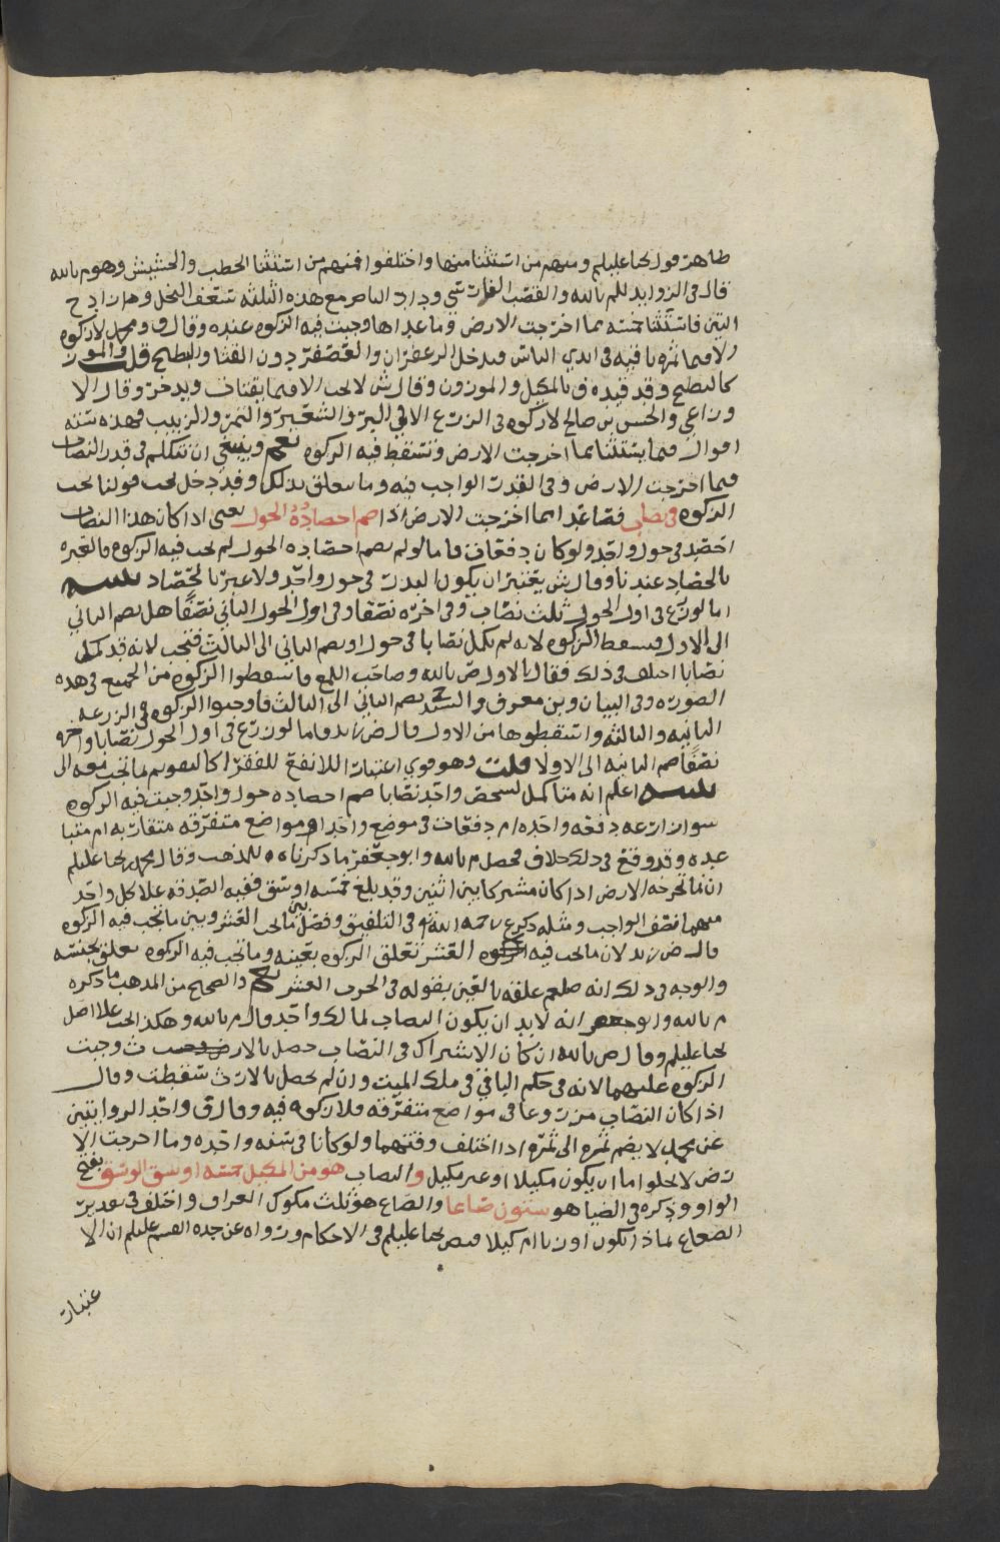 ظاهر قول يحيا عليلم ومنهم من استثنا منها واختلفوا فمنهم من استثنا الحطب والحشيش وهو م بالله
قال في الزوايد للم بالله والقصب الفارسي وزاد الناصر مع هذه الثلثه سعف النخل وهو زاد ح
التين فاستثنا خمسه مما اخرجت الارض وما عداها وجبت فيه الزكوه عنده وقال ف ومحمد لا زكوه
الا فيما ثمره باقيه في ايدي الناس فيدخل الزعفران والعصفر دون القثا والبطيخ قلت والموز
كالبطيخ وقد قيده ف بالمكيل والموزون وقال ش لا تجب الا فيما يقتات ويدخر وقال الا
وزاعي والحسن بن صالح لا زكوه في الزرع الا في البر والشعير والتمر والزبيب فهذه سته
اقوال فيما يستثنا مما اخرجت الارض وتسقط فيه الزكوه نعم وينبغي ان نتكلم في قدر النصاب
فيما اخرجت الارض وفي القدر الواجب فيه وما يتعلق بذلك وقد دخل تحت قولنا تجب
الزكوه في نصاب فصاعدا مما اخرجت الارض اذا ضم احصاده الحول يعني اذا كان هذا النصاب
احصد في حول واحد ولو كان دفعات فاما لو لم يضم احصاده الحول لم تجب فيه الزكوه فالعبره
بالحصاد عندنا وقال ش يعتبر ان يكون البذر في حول واحد ولا عبره بالحصاد تنبيه
اما لو زرع في اول الحول ثلث نصاب وفي اخره نصفا وفي اول الحول الثاني نصفا هل يضم الثاني
الى الاول فيسقط الزكوه لانه لم يكمل نصابا في حول او يضم الثاني الى الثالث فتجب لانه قد كمل
نصابا اختلف في ذلك فقال بالاول ص بالله وصاحب اللمع فاسقطوا الزكوه من الجميع في هذه
الصوره وفي البيان وبن معرف والسيد ح يضم الثاني الى الثالث فاوجبوا الزكوه في الزرعه
الثانيه والثالثه واسقطوها من الاول قال ض زيد واما لو زرع في اول الحول نصابا واخره
نصفا ضم الثانيه الى الاولا قلت وهو قوي اعتبارا للانفع للفقرا كالتقويم لما تجب فيه الى
تنبيه اعلم انه متا كمل لشخص واحد نصابا ضم احصاده حول واحد وجبت فيه الزكوه
سوا زرعه دفعه واحده ام دفعات في موضع واحد او مواضع متفرقه متقاربه ام متبا
عده وقد وقع في ذلك خلاف فحصل م بالله وابو جعفر ما ذكرناه للمذهب وقال محمد بن يحيا عليلم
ان ما تخرجه الارض اذا كان مشتركا بين اثنين وقد بلغ خمسه اوسق ففيه الصدقه علا كل واحد
منهما نصف الواجب ومثله ذكر ع رحمه الله في التلفيق وفصل بين ما تجب العشر وبين ما تجب فيه الزكوه
قال ض زيد لان ما تجب فيه العشر تتعلق الزكوه بعينه وما تجب فيه الزكوه تتعلق بجنسه
والوجه في ذلك انه صلعم علقه بالعين بقوله في الحرث العشر نعم والصحيح من المذهب ما ذكره
م بالله وابو جعفر انه لا بد ان يكون النصاب لمالك واحد وقال م بالله وهكذا تجب علا اصل
يحيا عليلم وقال ص بالله ان كان الاشتراك في النصاب حصل بالارث وجبت
الزكوه عليهما لانه في حكم الباقي في ملك الميت وان لم يحصل بالارث سقطت وقال
اذا كان النصاب مزروعا في مواضع متفرقه فلا زكوه فيه وقال ق واحد الروايتين
عن محمد لا يضم ثمره الى ثمره اذا اختلف وقتهما ولو كانا في سنه واحده وما اخرجت الا
رض لا يخلوا اما ان يكون مكيلا او غير مكيل والنصاب هو من المكيل خمسه اوسق الوسق بفتح
الواو وذكره في الضيا هو ستون صاعا والصاع هو ثلث مكوك العراق واختلف في تقدير
الصاع بماذا يكون اوزنا ام كيلا فنص يحيا عليلم في الاحكام ورواه عن جده القسم عليلم ان الا
عتبار